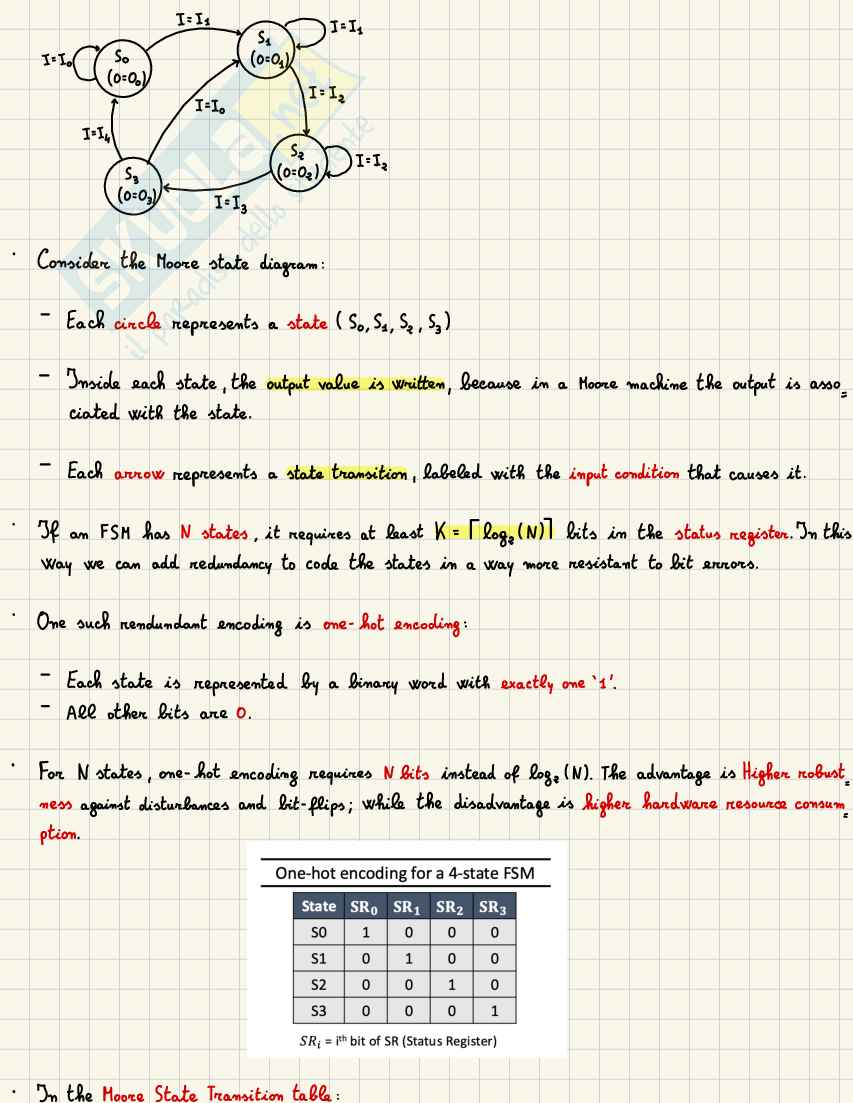 I=I₁
S₁
(O=O₁)
I=I₁
I=I₀
S₀
(O=O₀)
I=I₀
I=I₂
I=I₄
S₃
(O=O₃)
S₂
(O=O₂)
I=I₂
I=I₃
SKUOLA.net
il paradiso dello studente
· Consider the Moore state diagram:
- Each circle represents a state (S₀, S₁, S₂, S₃)
- Inside each state, the output value is written, because in a Moore machine the output is asso=
ciated with the state.
- Each arrow represents a state transition, labeled with the input condition that causes it.
· If an FSM has N states, it requires at least K = ⌈log₂(N)⌉ bits in the status register. In this
way we can add redundancy to code the states in a way more resistant to bit errors.
· One such rendundant encoding is one-hot encoding:
- Each state is represented by a binary word with exactly one '1'.
- All other bits are 0.
· For N states, one-hot encoding requires N bits instead of log₂(N). The advantage is Higher robust=
ness against disturbances and bit-flips; while the disadvantage is higher hardware resource consum=
ption.
One-hot encoding for a 4-state FSM
State SR₀ SR₁ SR₂ SR₃
S0 1 0 0 0
S1 0 1 0 0
S2 0 0 1 0
S3 0 0 0 1
SRᵢ = iᵗʰ bit of SR (Status Register)
· In the Moore State Transition table: